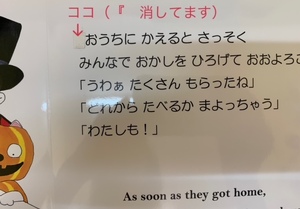 ココ（『　消してます）
おうちに かえると さっそく
みんなで おかしを ひろげて おおよろこ
「うわぁ たくさん もらったね」
「どれから たべるか まよっちゃう」
「わたしも！」
As soon as they got home,